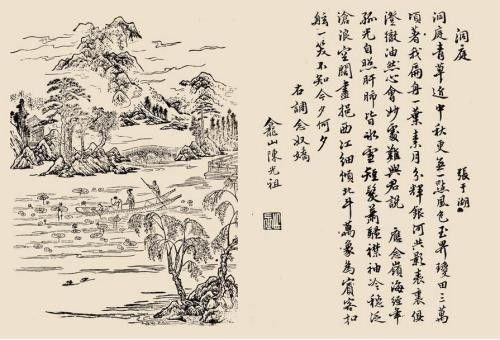 洞庭
張于湖
洞庭青草近中秋更無一點風色玉界瓊田三萬
頃著我扁舟一葉素月分輝銀河共影表裏俱
澄徹油然心會妙處難與君說 應念嶺海經年
孤光自照肝肺皆冰雪短髮蕭疎襟袖冷穩泛
滄浪空闊盡挹西江細傾北斗萬象為賓客扣
舷一笑不知今夕何夕
右調念奴嬌
龕山陳光祖